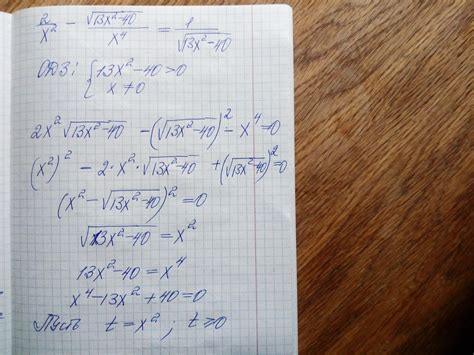 2/x² - √(13x²-40)/x⁴ = 1/√(13x²-40)
ОДЗ: { 13x²-40>0
x ≠ 0
2x²√(13x²-40) - (√(13x²-40))² - x⁴=0
(x²)² - 2·x²·√(13x²-40) + (√(13x²-40))²=0
(x²-√(13x²-40))²=0
√(13x²-40) = x²
13x²-40 = x⁴
x⁴-13x²+40=0
Пусть t=x²; t≥0